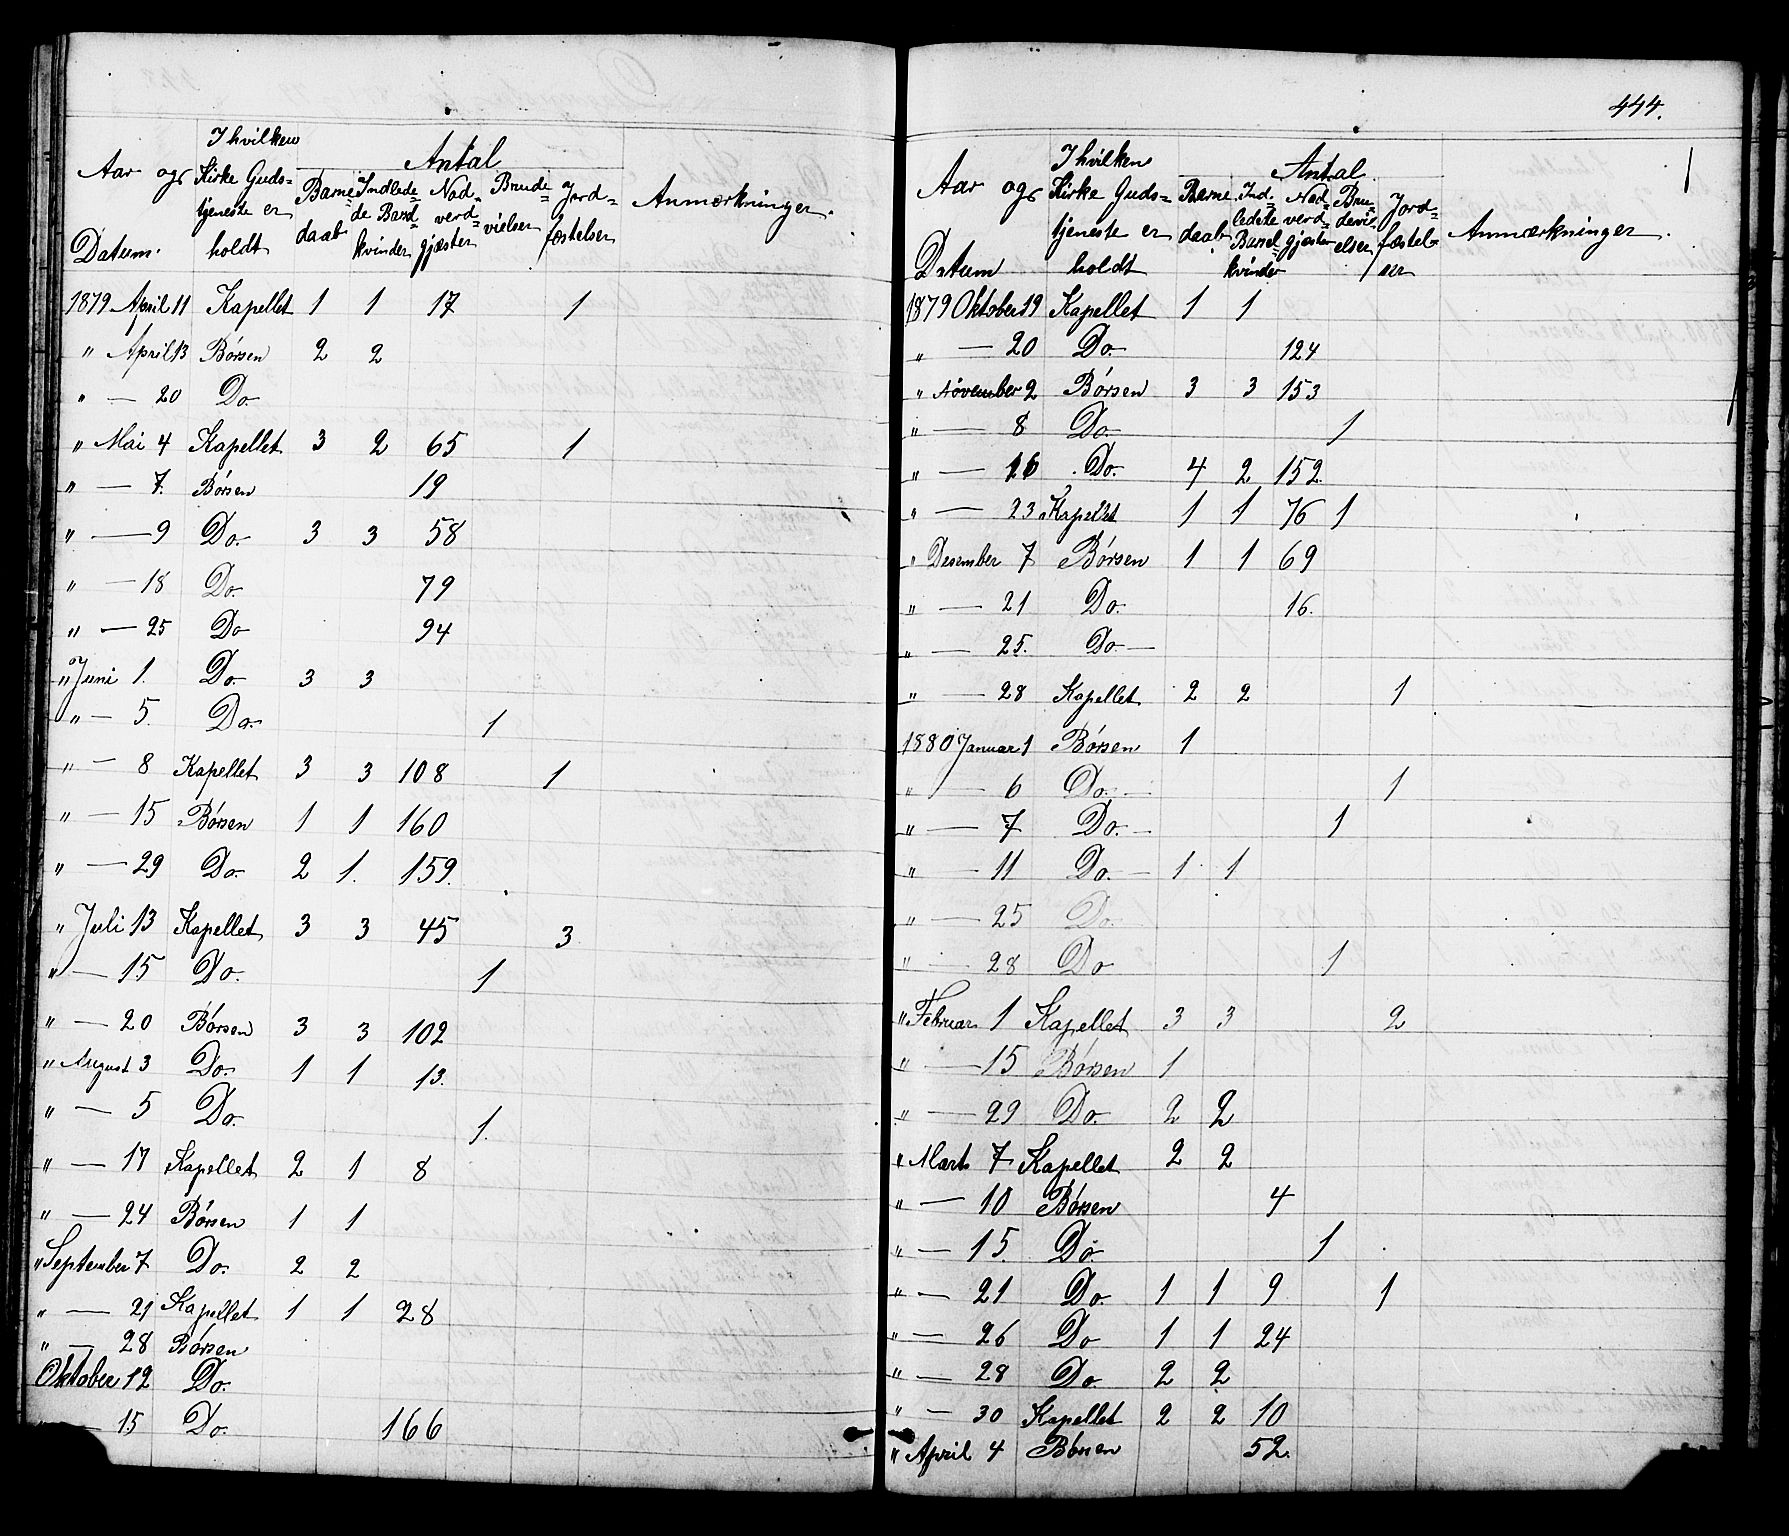 Aar og Datum. I hvilken Kirke Gudstjeneste er holdt Antal Barnedaab Indledede Barselkvinder Nadverdgjæster Brudevielser Jordfæstelser Anmærkninger.
1879 April 11 Kapellet 1 1 17 1
" April 13 Børsen 2 2
" — 20 Do.
" Mai 4 Kapellet 3 2 65 1
" — 7. Børsen 19
" — 9 Do. 3 3 58
" — 18 Do. 79
" — 25 Do 94
" Juni 1. Do. 3 3
" — 5. Do. 1
" — 8 Kapellet 3 3 108 1
" — 15 Børsen 1 1 160
" — 29 Do. 2 1. 159.
" Juli 13 Kapellet 3 3 45 3
" — 15 Do. 1
" — 20 Børsen 3 3 102
" August 3 Do. 1 1 13.
" — 5 Do. 1.
" — 17 Kapellet 2 1 8
" — 24 Børsen 1 1
" September 7 Do. 2 2
" — 21 Kapellet 1 1 28
" — 28 Børsen
Oktober 12 Do.
" — 15 Do. 166
444.
Aar og Datum I hvilken Kirke Gudstjeneste er holdt Antal. Barnedaab Indledete Barselkvinder Nadverdgjæster Brudevielser Jordfæstelser Anmærkninger.
1879 Oktober 19 Kapellet 1 1
" — 20 Do. 124
" November 2 Børsen 3 3 153
" — 8 Do. 1
" — 16 Do. 4 2 152.
" — 23 Kapellet 1 1 76 1
" Desember 7 Børsen 1 1 69
" — 21 Do. 16.
" — 25. Do. —
" — 28 Kapellet 2 2 1
1880 Januar 1 Børsen 1
" — 6 Do. — 1
" — 7 Do. — 1
" — 11 Do. — 1 1
" — 25 Do.
" — 28 Do 1
" Februar 1 Kapellet 3 3 2
" — 15 Børsen 1
" — 29 Do. 2 2
" Marts 7 Kapellet 2 2
" — 10 Børsen 4
" — 15. Do. 1
" — 21 Do. 1 1 9 1
" — 26 Do 1 1 24
" — 28 Do. 2 2
" — 30 Kapellet 2 2 10
" April 4 Børsen 52.